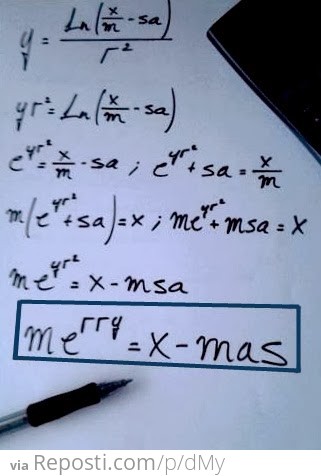 y = Ln(x/m - sa) / r²
yr² = Ln(x/m - sa)
e^yr² = x/m - sa ; e^yr² + sa = x/m
m(e^yr² + sa) = x ; me^yr² + msa = x
me^yr² = x - msa
me^rry = x - mas
via Reposti.com/p/dMy